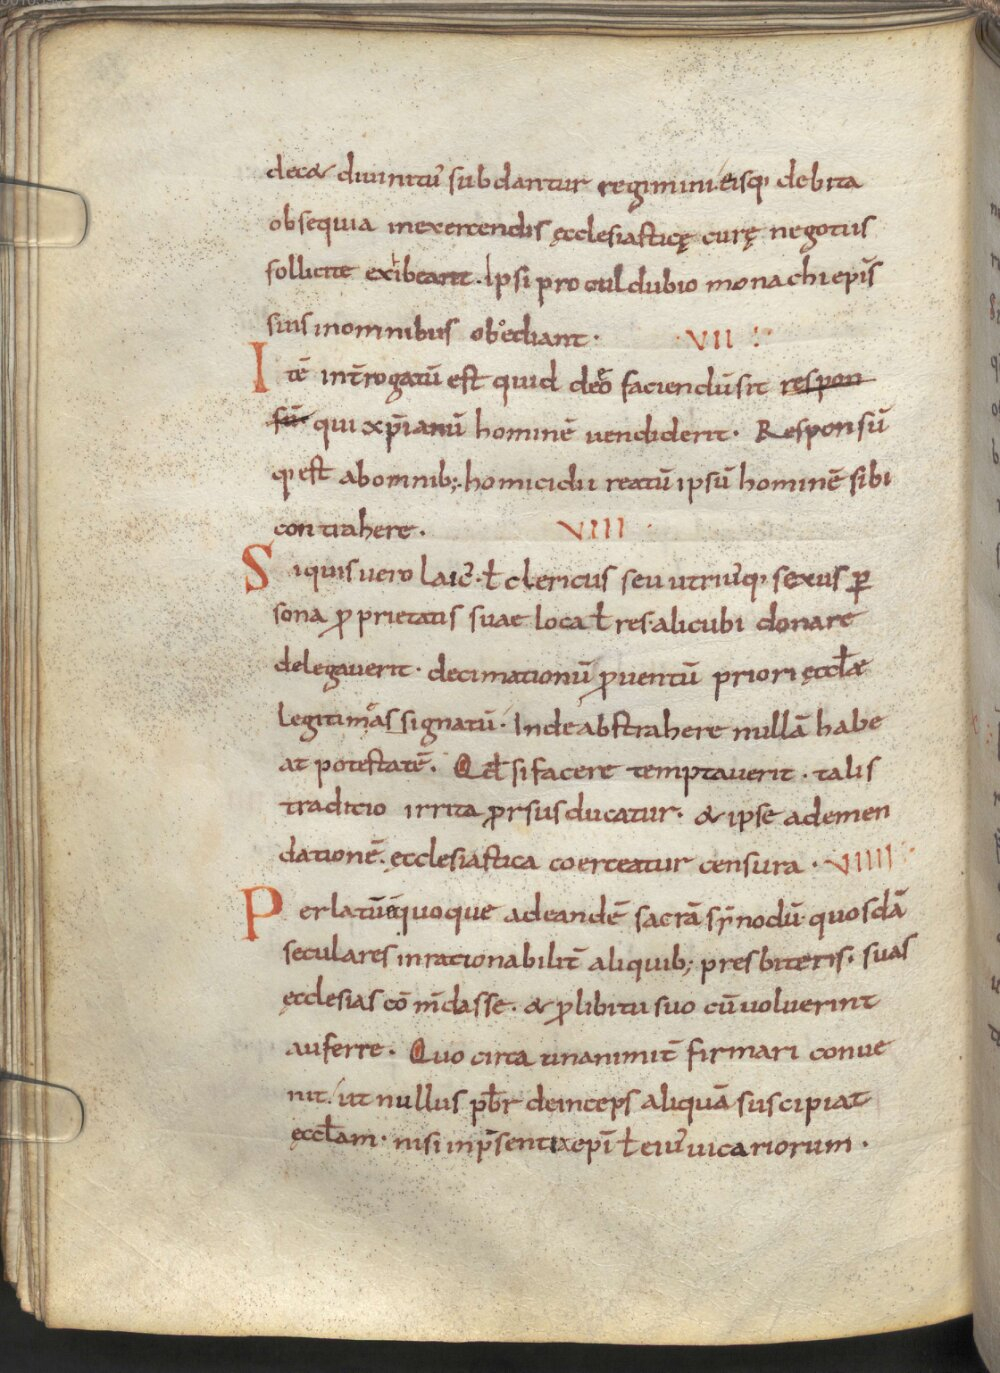 decet diuinitu᷒ subdantur regimini. eisq; debita
obsequia inexercendis ęcclesiasticę curę negotiis
sollicite exhibeant. Ipsi pro cul dubio monachi ep̄is
suis inomnibus obediant · · VII ·
Itē int̄rogatū est quid deo faciendū sit respon
sū qui xp̄ianū hominē uendiderit · Responsū
q; est abomnib; homicidii reatū ipsū hominē sibi
contrahere · VIII ·
Siquis uero laic᷒ · ł clericus seu utri᷒q; sexus ꝑ
sona ꝓprietatis suae loca ł res · alicubi donare
delegauerit · decimationū ꝓuentū priori ęccłae
legitimo assignatū · Inde abstrahere nullā habe
at potestatē. Qđ si facere temptauerit · talis
traditio irrita ꝓrsus ducatur · & ipse ademen
dationē ęcclesiastica coerceatur censura · VIIII ·
Perlatū quoque adeandē sacrā sẏnodū quosdā
seculares inrationabilit̄ aliquib; presbiteris · suas
ęcclesias cōm̄dasse · & ꝓlibitu suo cū uoluerint
auferre · Quo circa unanimit̄ firmari conue
nit · ut nullus pb̄r deinceps aliquā suscipiat
ęccłam · nisi inp̄sentia ep̄i ł ei᷒ uicariorum ·